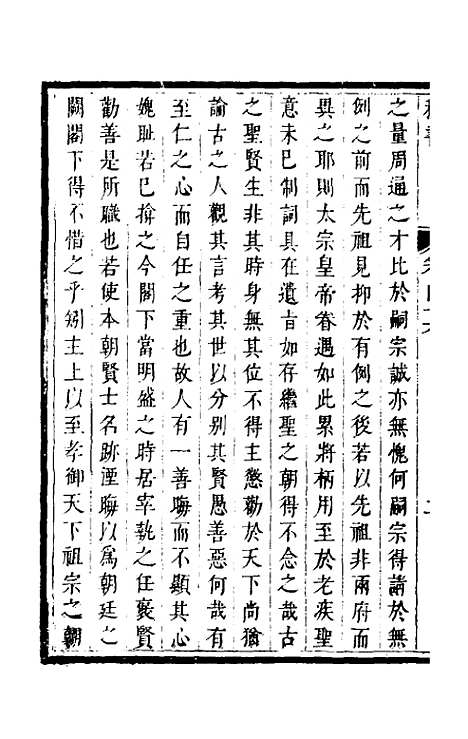 之量周通之才比於嗣宗誠亦無愧何嗣宗得請於無
例之前而先祖見抑於有例之後若以先祖非兩府而
異之耶則太宗皇帝眷遇如此累將柄用至於老疾聖
意未已制詞具在遺旨如存繼聖之朝得不念之哉古
之聖賢生非其時身無其位不得主懲勸於天下尚猶
論古之人觀其言考其世以分別其賢愚善惡何哉有
至仁之心而自任之重也故人有一善晦而不顯其心
媿耻若已揜之今閣下當明盛之時居宰執之任褒賢
勸善是所職也若使本朝賢士名跡湮晦以爲朝廷之
闕閣下得不惜之乎矧主上以至孝御天下祖宗之朝